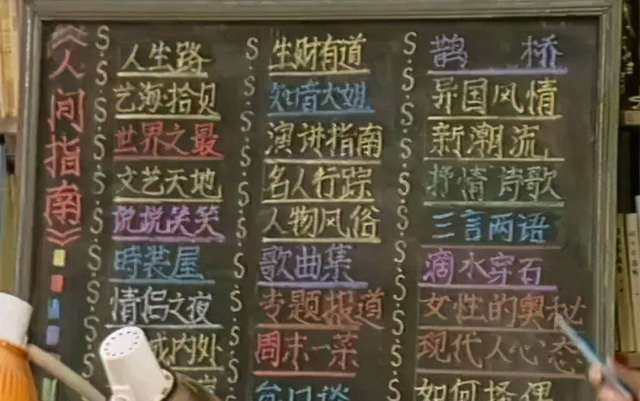 《人间指南》
人生路
艺海拾贝
世界之最
文艺天地
说说笑笑
時装屋
情侣之夜
城内外
生财有道
知音大姐
演讲指南
名人行踪
人物风俗
歌曲集
专题报道
周末一菜
鹊桥
异国风情
新潮流
抒情诗歌
三言两语
滴水穿石
女性的奥秘
现代人心态
如何择偶